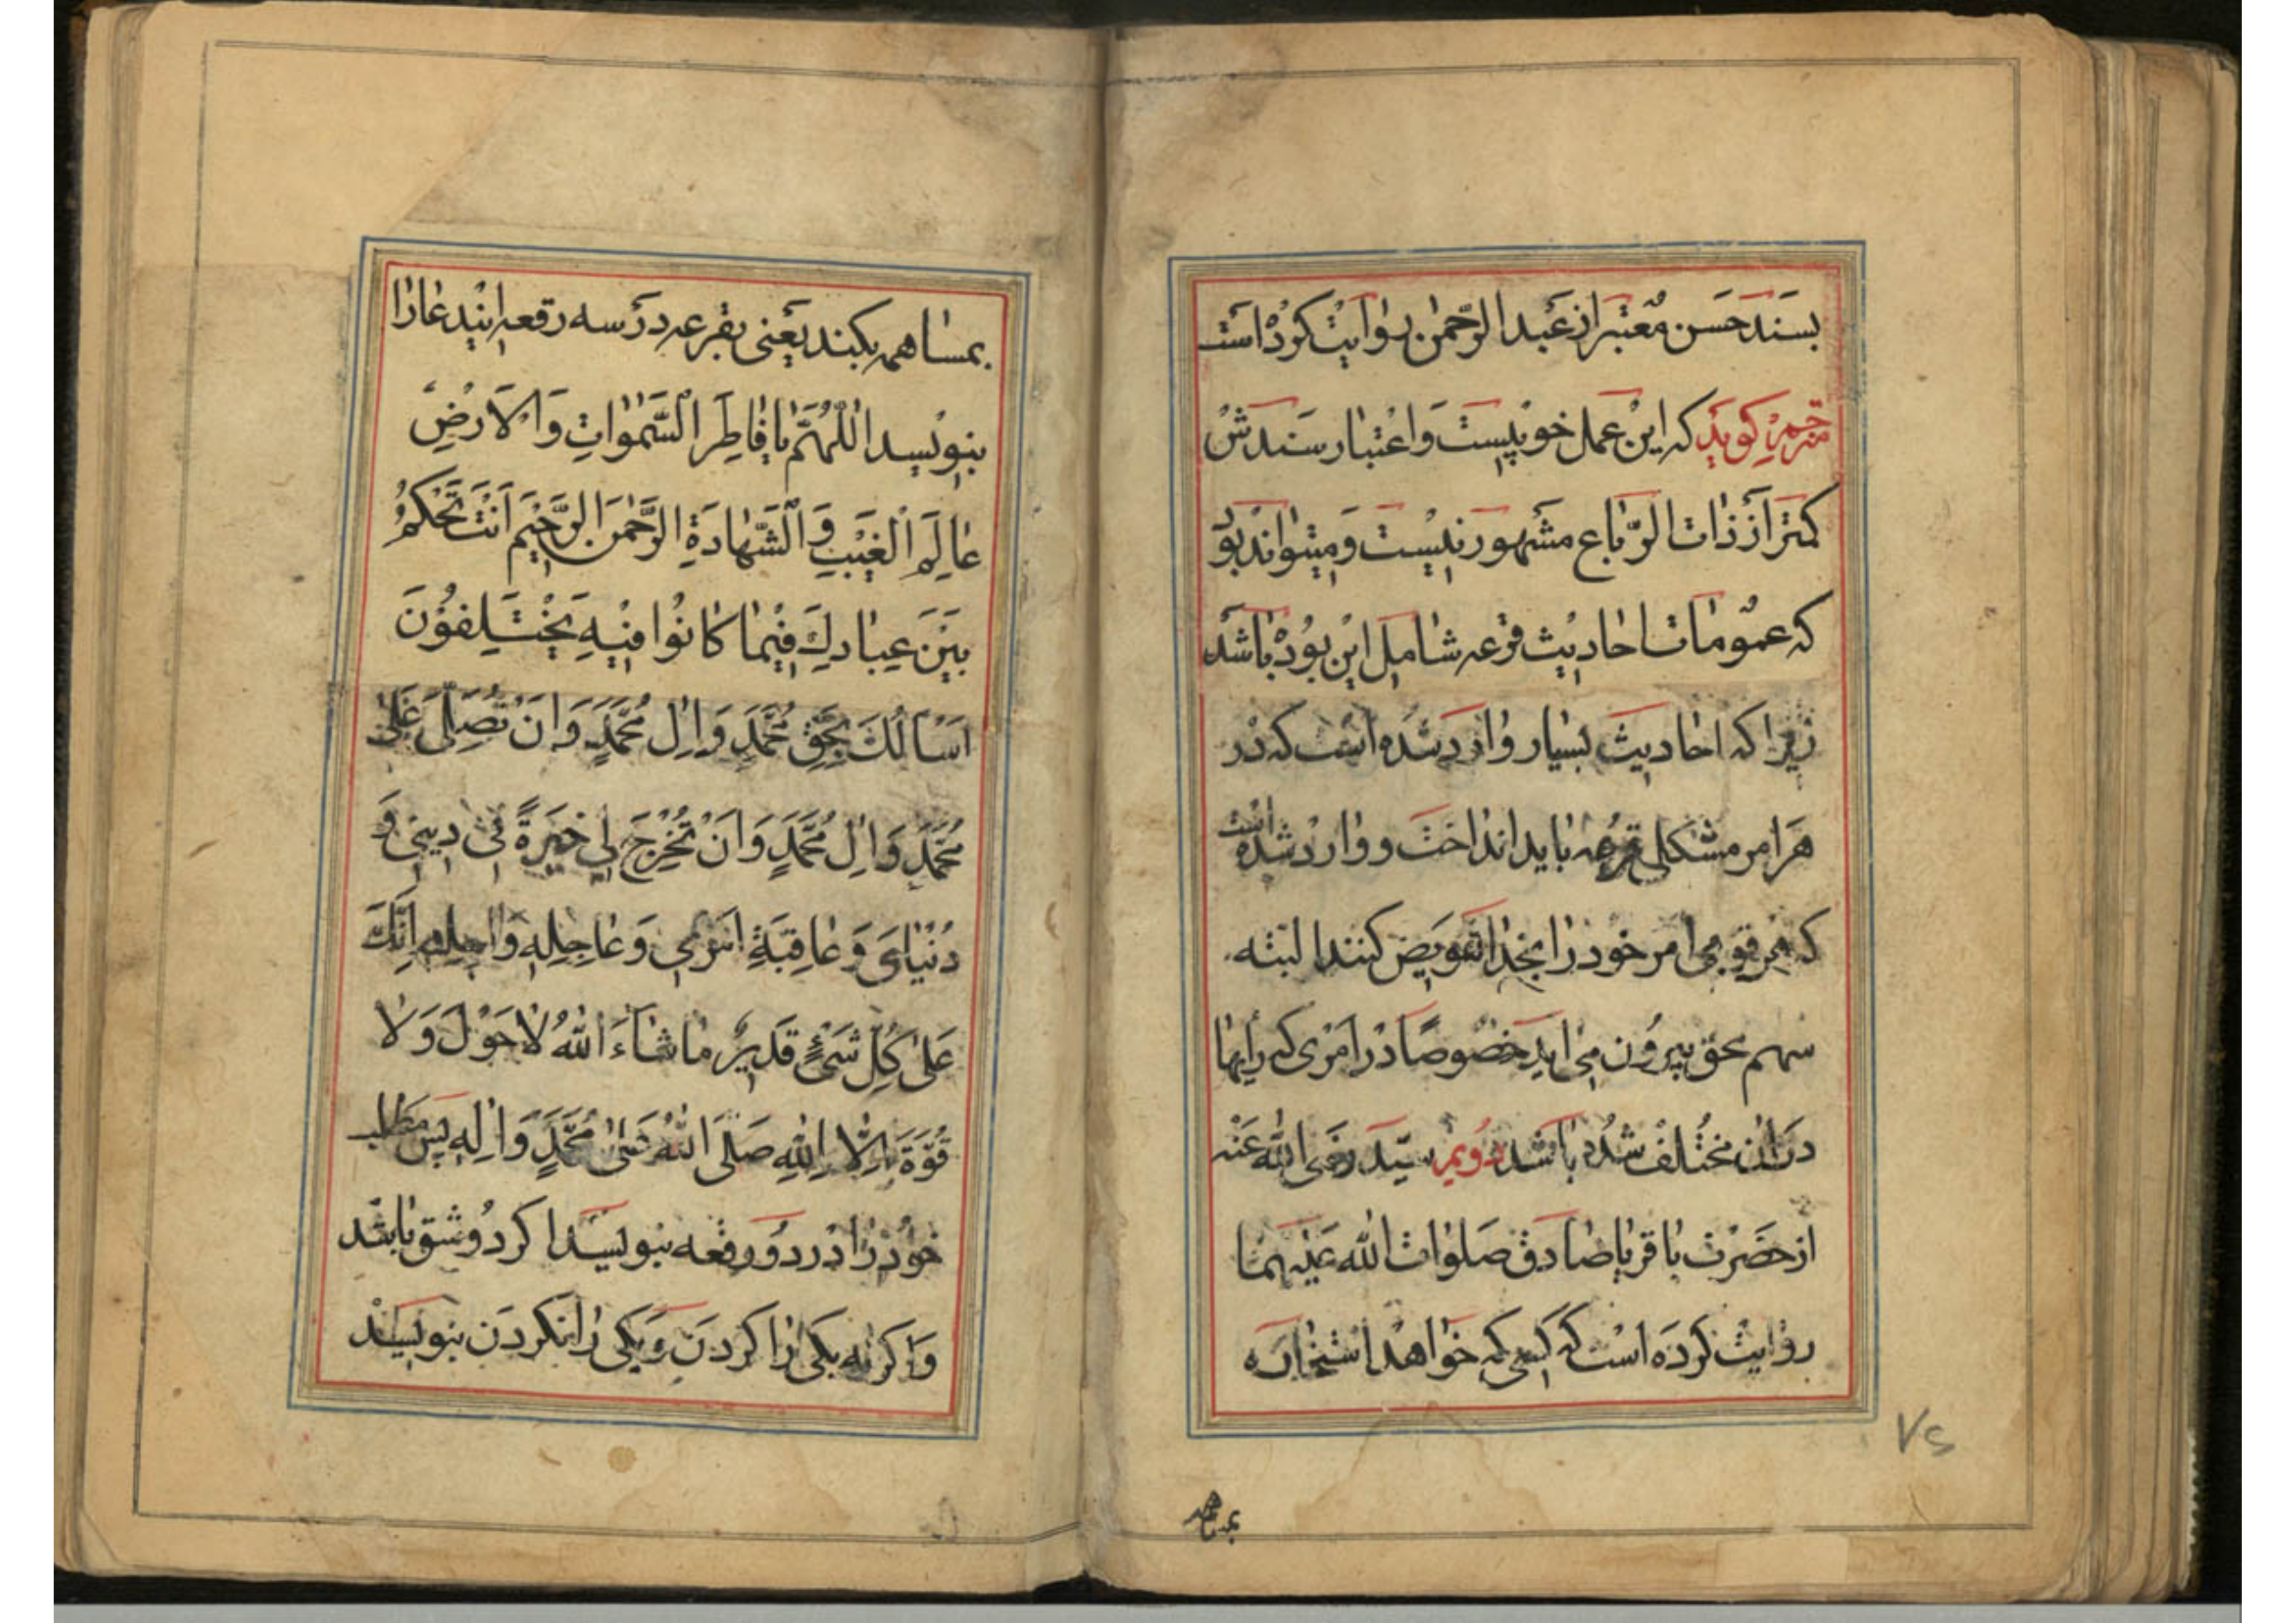 بسند حسن معتبر از عبد الرحمن روایت کرده است
مترجم کوید که این عمل خوبیست و اعتبار سندش
کمتر از ذات الرقاع مشهور نیست و میتواند بود
که عمومات احادیث قرعه شامل این بوده باشد
زیرا که احادیث بسیار وارد شده است که در
هر امر مشکلی قرعه باید انداخت و وارد شده است
که هر قومی امر خود را بخدا تفویض کنند البته
سهم محق بیرون می اید خصوصا در امری که رایها
در ان مختلف شده باشد دویم سید رضی الله عنه
از حضرت باقر یا صادق صلوات الله علیهما
روایت کرده است که کسی که خواهد استخاره
بمساهمه
۷۲
بمساهمه بکند یعنی بقرعه در سه رقعه ایندعا را
بنویسد اَللّٰهُمَّ یا فٰاطِرَ السَّمٰوٰاتِ وَ الْاَرْضِ
عٰالِمَ الْغَیْبِ وَ الشَّهٰادَةِ الرَّحْمٰنَ الرَّحِیْمَ اَنْتَ تَحْکُمُ
بَیْنَ عِبٰادِكَ فِیْمٰا کٰانُوْا فِیْهِ یَخْتَلِفُوْنَ
اَسْاَلُكَ بِحَقِّ مُحَمَّدٍ وَ اٰلِ مُحَمَّدٍ وَ اَنْ تُصَلِّیَ عَلٰی
مُحَمَّدٍ وَ اٰلِ مُحَمَّدٍ وَ اَنْ تُخْرِجَ لِی خِیَرَةً فِی دِیْنِی وَ
دُنْیٰایَ وَ عٰاقِبَةِ اَمْرِی وَ عٰاجِلِهِ وَ اٰجِلِهِ اِنَّكَ
عَلٰی کُلِّ شَیْءٍ قَدِیْرٌ مٰا شٰاءَ اللّٰهُ لٰا حَوْلَ وَ لٰا
قُوَّةَ اِلّٰا بِاللّٰهِ صَلَّی اللّٰهُ عَلٰی مُحَمَّدٍ وَ اٰلِهِ پس مطلب
خود را در دو رقعه بنویسد اکر دو شق باشد
و اکر نه یکی را کردن و یکی را نکردن بنویسد